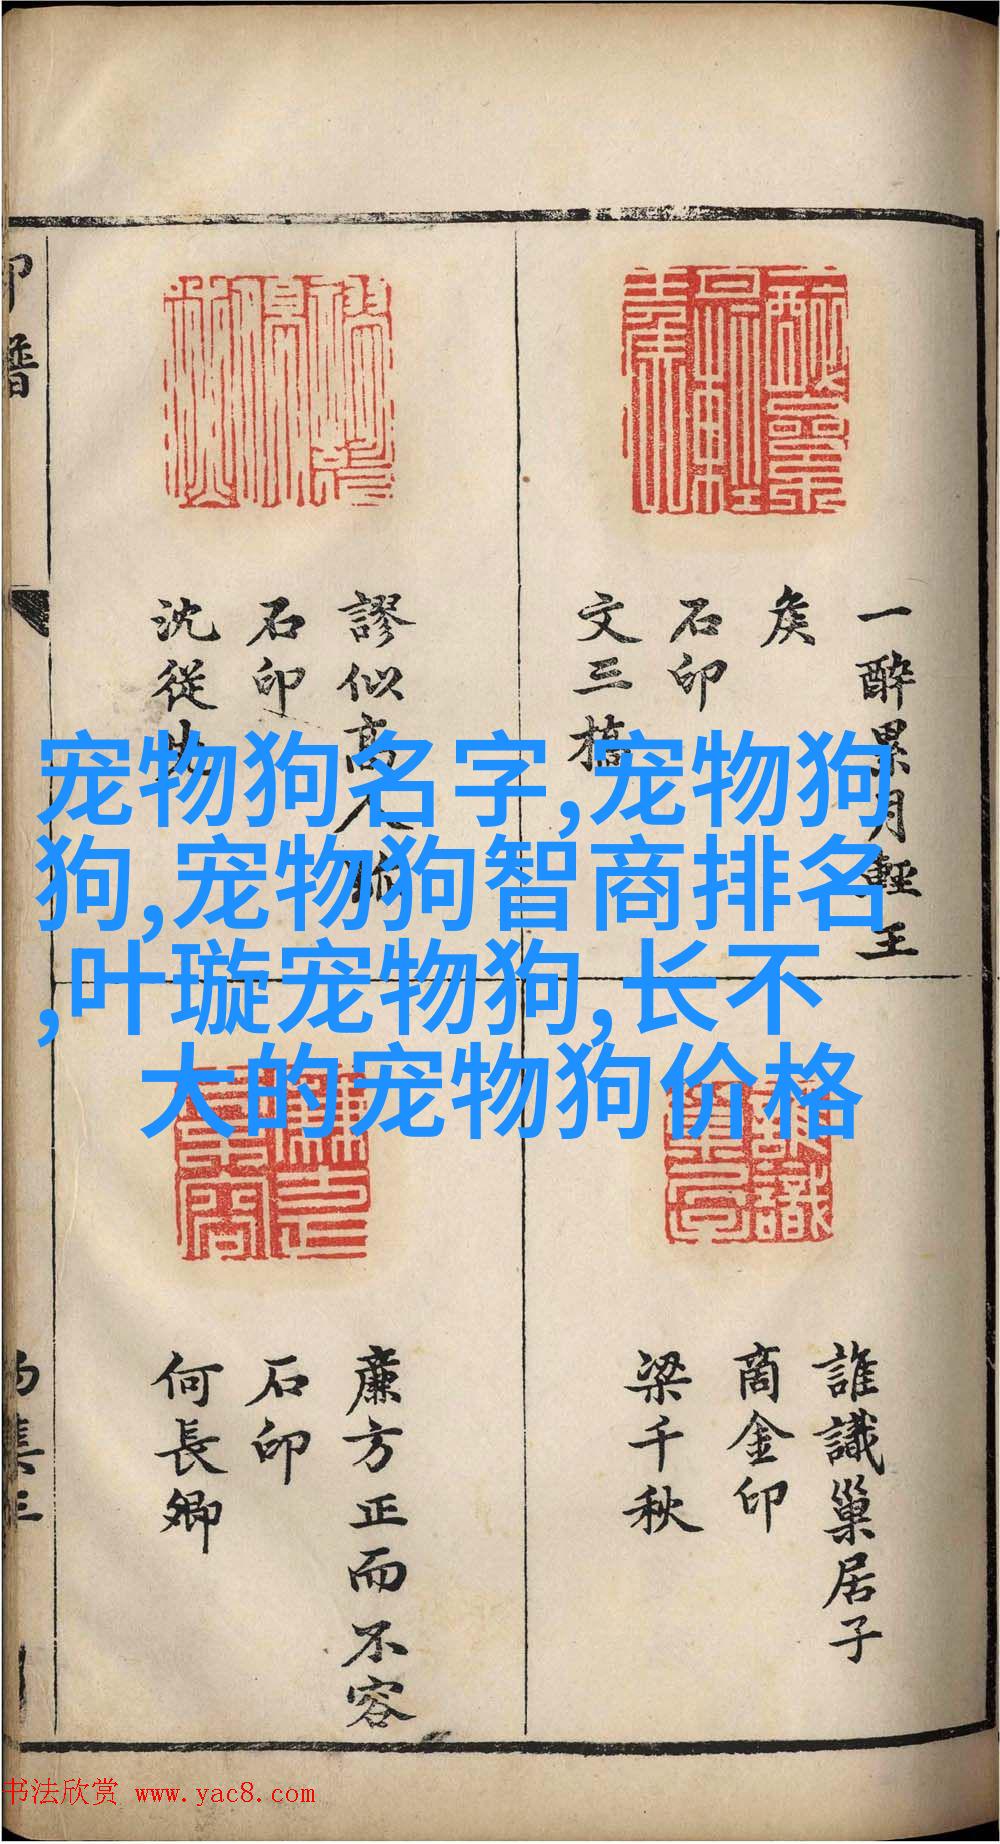 宠物狗名字,宠物狗
狗,宠物狗智商排名
,叶璇宠物狗,长不
大的宠物狗价格
一醉累月輕王
矦
石印
文三橋
謬似高人
石印
沈從先
誰識巢居子
商金印
梁千秋
廉方正而不容
石印
何長卿
印譜
書法欣赏 www.yac8.com